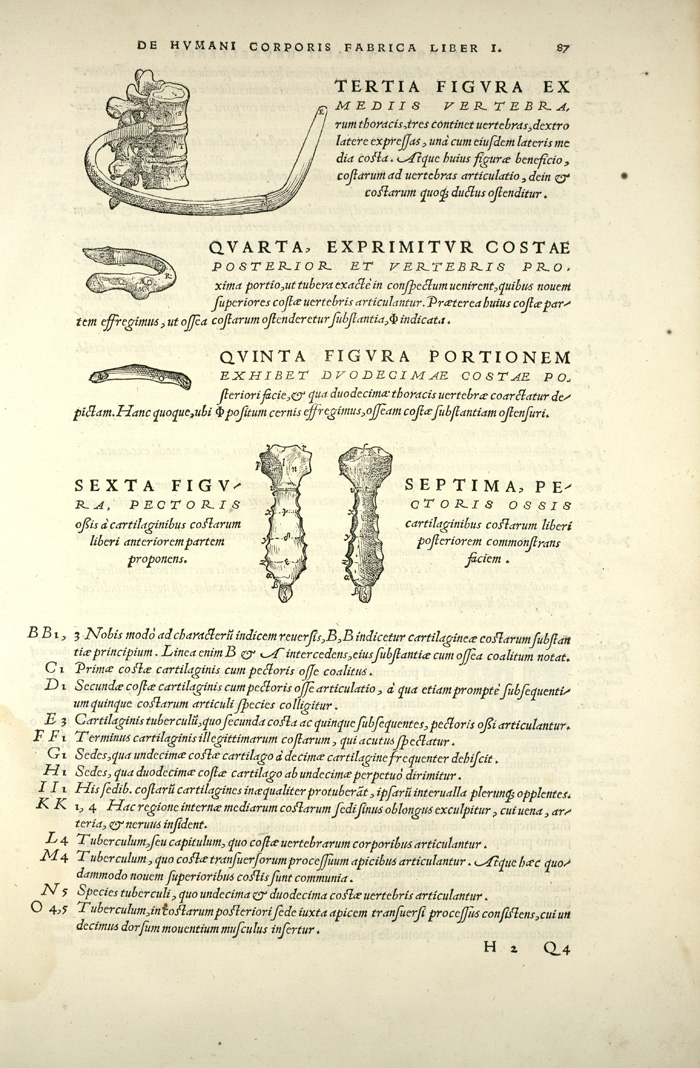 DE HVMANI CORPORIS FABRICA LIBER I. 87
TERTIA FIGVRA EX
MEDIIS VERTEBRA,
rum thoracis, tres continet uertebras, dextro
latere expreſſas, unà cum eiuſdem lateris me
dia coſta. Atque huius figuræ beneficio,
coſtarum ad uertebras articulatio, dein &
coſtarum quoq; ductus oſtenditur.
QVARTA, EXPRIMITVR COSTAE
POSTERIOR ET VERTEBRIS PRO,
xima portio, ut tubera exactè in conſpectum uenirent, quibus nouem
ſuperiores coſtæ uertebris articulantur. Præterea huius coſtæ par-
tem effregimus, ut oſſea coſtarum oſtenderetur ſubſtantia, Φ indicata.
QVINTA FIGVRA PORTIONEM
EXHIBET DVODECIMAE COSTAE PO,
ſteriori facie, & qua duodecimæ thoracis uertebræ coarctatur de-
pictam. Hanc quoque, ubi Φ poſitum cernis effregimus, oſſeam coſtæ ſubſtantiam oſtenſuri.
SEXTA FIGV-
RA, PECTORIS
oſsis à cartilaginibus coſtarum
liberi anteriorem partem
proponens.
SEPTIMA, PE-
CTORIS OSSIS
cartilaginibus coſtarum liberi
poſteriorem commonſtrans
faciem.
B B 1, 3 Nobis modò ad characterũ indicem reuerſis, B, B indicetur cartilagineæ coſtarum ſubſtan
tiæ principium. Linea enim B & A intercedens, eius ſubſtantiæ cum oſſea coalitum notat.
C 1 Primæ coſtæ cartilaginis cum pectoris oſſe coalitus.
D 1 Secundæ coſtæ cartilaginis cum pectoris oſſe articulatio, à qua etiam promptè ſubſequenti-
um quinque coſtarum articuli ſpecies colligitur.
E 3 Cartilaginis tuberculũ, quo ſecunda coſta ac quinque ſubſequentes, pectoris oſsi articulantur.
F F 1 Terminus cartilaginis illegittimarum coſtarum, qui acutus ſpectatur.
G 1 Sedes, qua undecimæ coſtæ cartilago à decimæ cartilagine frequenter dehiſcit.
H 1 Sedes, qua duodecimæ coſtæ cartilago ab undecimæ perpetuò dirimitur.
I I 1 His ſedib. coſtarũ cartilagines inæqualiter protuberãt, ipſarũ interualla plerunq; opplentes.
K K 1, 4 Hac regione internæ mediarum coſtarum ſedi ſinus oblongus exculpitur, cui uena, ar-
teria, & neruus inſident.
L 4 Tuberculum, ſeu capitulum, quo coſtæ uertebrarum corporibus articulantur.
M 4 Tuberculum, quo coſtæ tranſuerſorum proceſſuum apicibus articulantur. Atque hæc quo-
dammodo nouem ſuperioribus coſtis ſunt communia.
N 5 Species tuberculi, quo undecima & duodecima coſtæ uertebris articulantur.
O 4, 5 Tuberculum, in coſtarum poſteriori ſede iuxta apicem tranſuerſi proceſſus conſiſtens, cui un
decimus dorſum mouentium muſculus inſertur.
H 2 Q 4